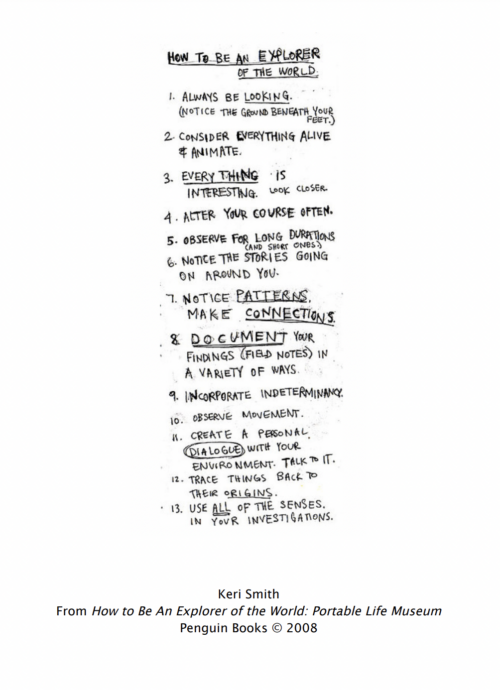 HOW TO BE AN EXPLORER
OF THE WORLD.
1. ALWAYS BE LOOKING.
(NOTICE THE GROUND BENEATH YOUR
FEET.)
2. CONSIDER EVERYTHING ALIVE
& ANIMATE.
3. EVERYTHING IS
INTERESTING. LOOK CLOSER.
4. ALTER YOUR COURSE OFTEN.
5. OBSERVE FOR LONG DURATIONS
(AND SHORT ONES.)
6. NOTICE THE STORIES GOING
ON AROUND YOU.
7. NOTICE PATTERNS.
MAKE CONNECTIONS.
8. DOCUMENT YOUR
FINDINGS (FIELD NOTES) IN
A VARIETY OF WAYS.
9. INCORPORATE INDETERMINANCY.
10. OBSERVE MOVEMENT.
11. CREATE A PERSONAL
DIALOGUE WITH YOUR
ENVIRONMENT. TALK TO IT.
12. TRACE THINGS BACK TO
THEIR ORIGINS.
13. USE ALL OF THE SENSES.
IN YOUR INVESTIGATIONS.
Keri Smith
From How to Be An Explorer of the World: Portable Life Museum
Penguin Books © 2008